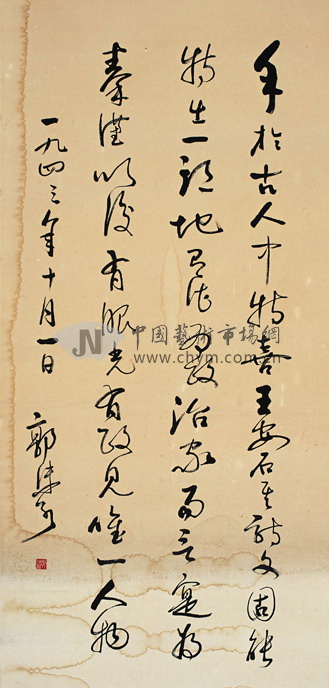 余於古人中特喜王安石其詩文固能
特出一頭地政治家而言寔為
秦漢以後有眼光有政見唯一人物
一九四三年十月一日
郭沫若
中國藝術市場網
www.chym.com.cn